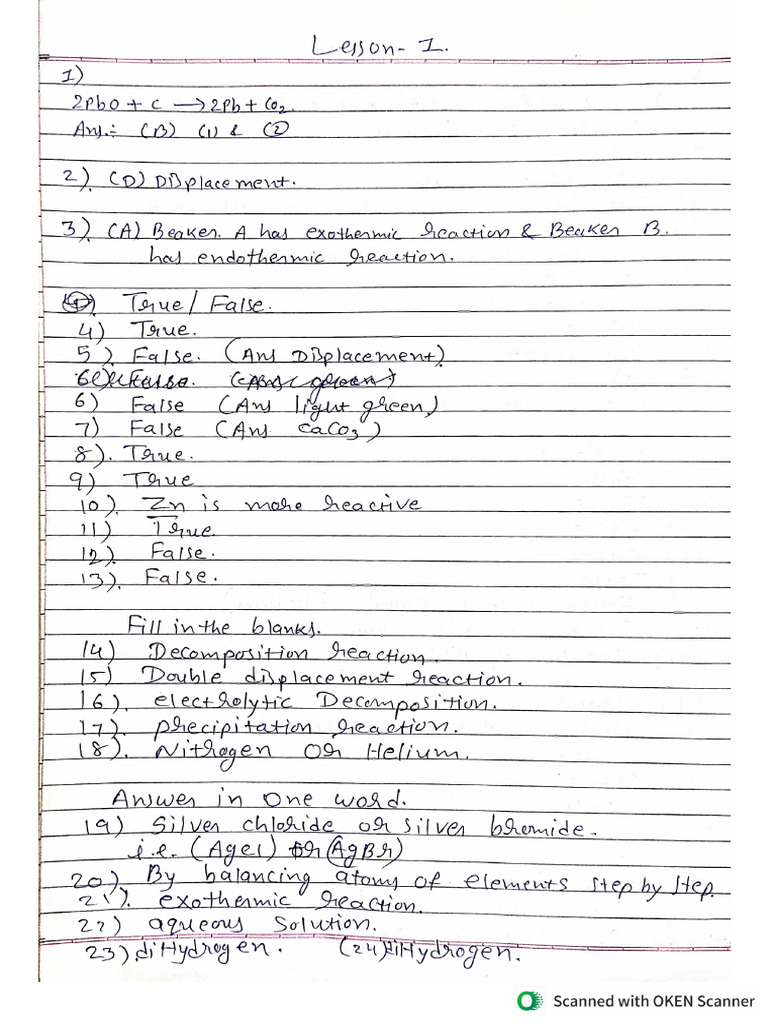 Lesson- 1.
1)
2PbO + C → 2Pb + CO2.
Ans.:- (B) (1) & (2)
2). (D) Displacement.
3). (A) Beaker. A has exothermic reaction & Beaker B.
has endothermic reaction.
True / False.
4) True.
5). False. (Ans Displacement)
6) False (Ans light green)
7) False (Ans CaCO3)
8). True.
9) True
10). Zn is more reactive
11) True
12). False.
13). False.
Fill in the blanks.
14) Decomposition reaction.
15) Double displacement reaction.
16). electrolytic Decomposition.
17). precipitation reaction.
18). Nitrogen or Helium.
Answer in one word.
19) Silver chloride or silver bromide.
i.e. (AgCl) or (AgBr)
20) By balancing atoms of elements step by step.
21). exothermic reaction.
22) aqueous solution.
23) diHydrogen. (24) diHydrogen.
Scanned with OKEN Scanner